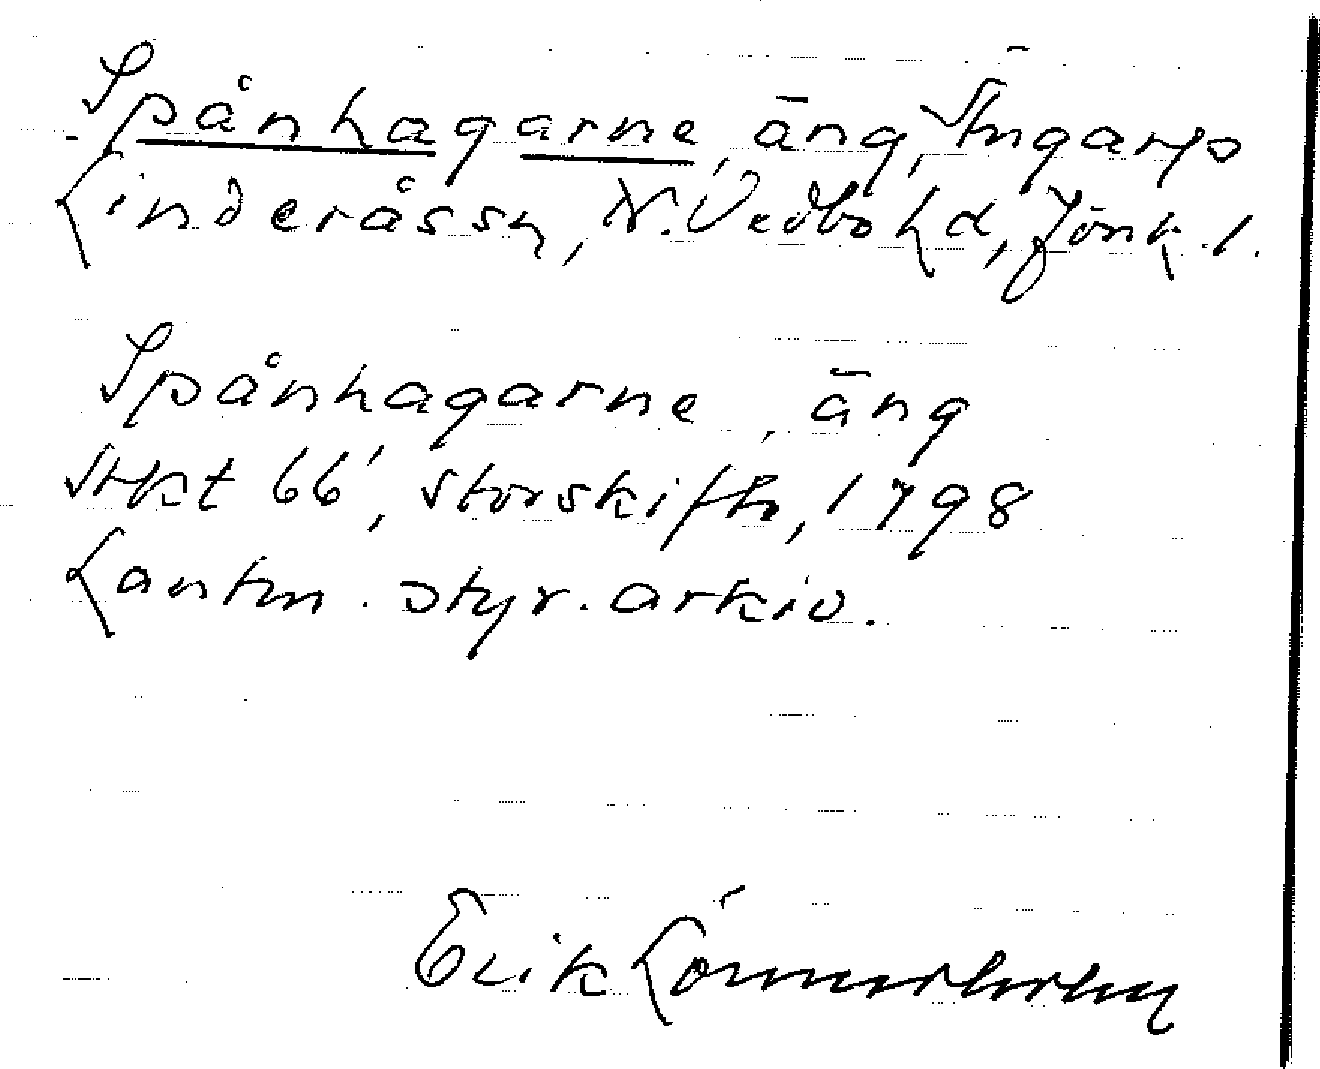 Spånhagarne, äng,
Linderås sn, N. Vedbo hd, Jönk. l.
Spånhagarne, äng
66', storskifte, 1798
Lantm. styr. arkiv.
Erik Lönnerholm